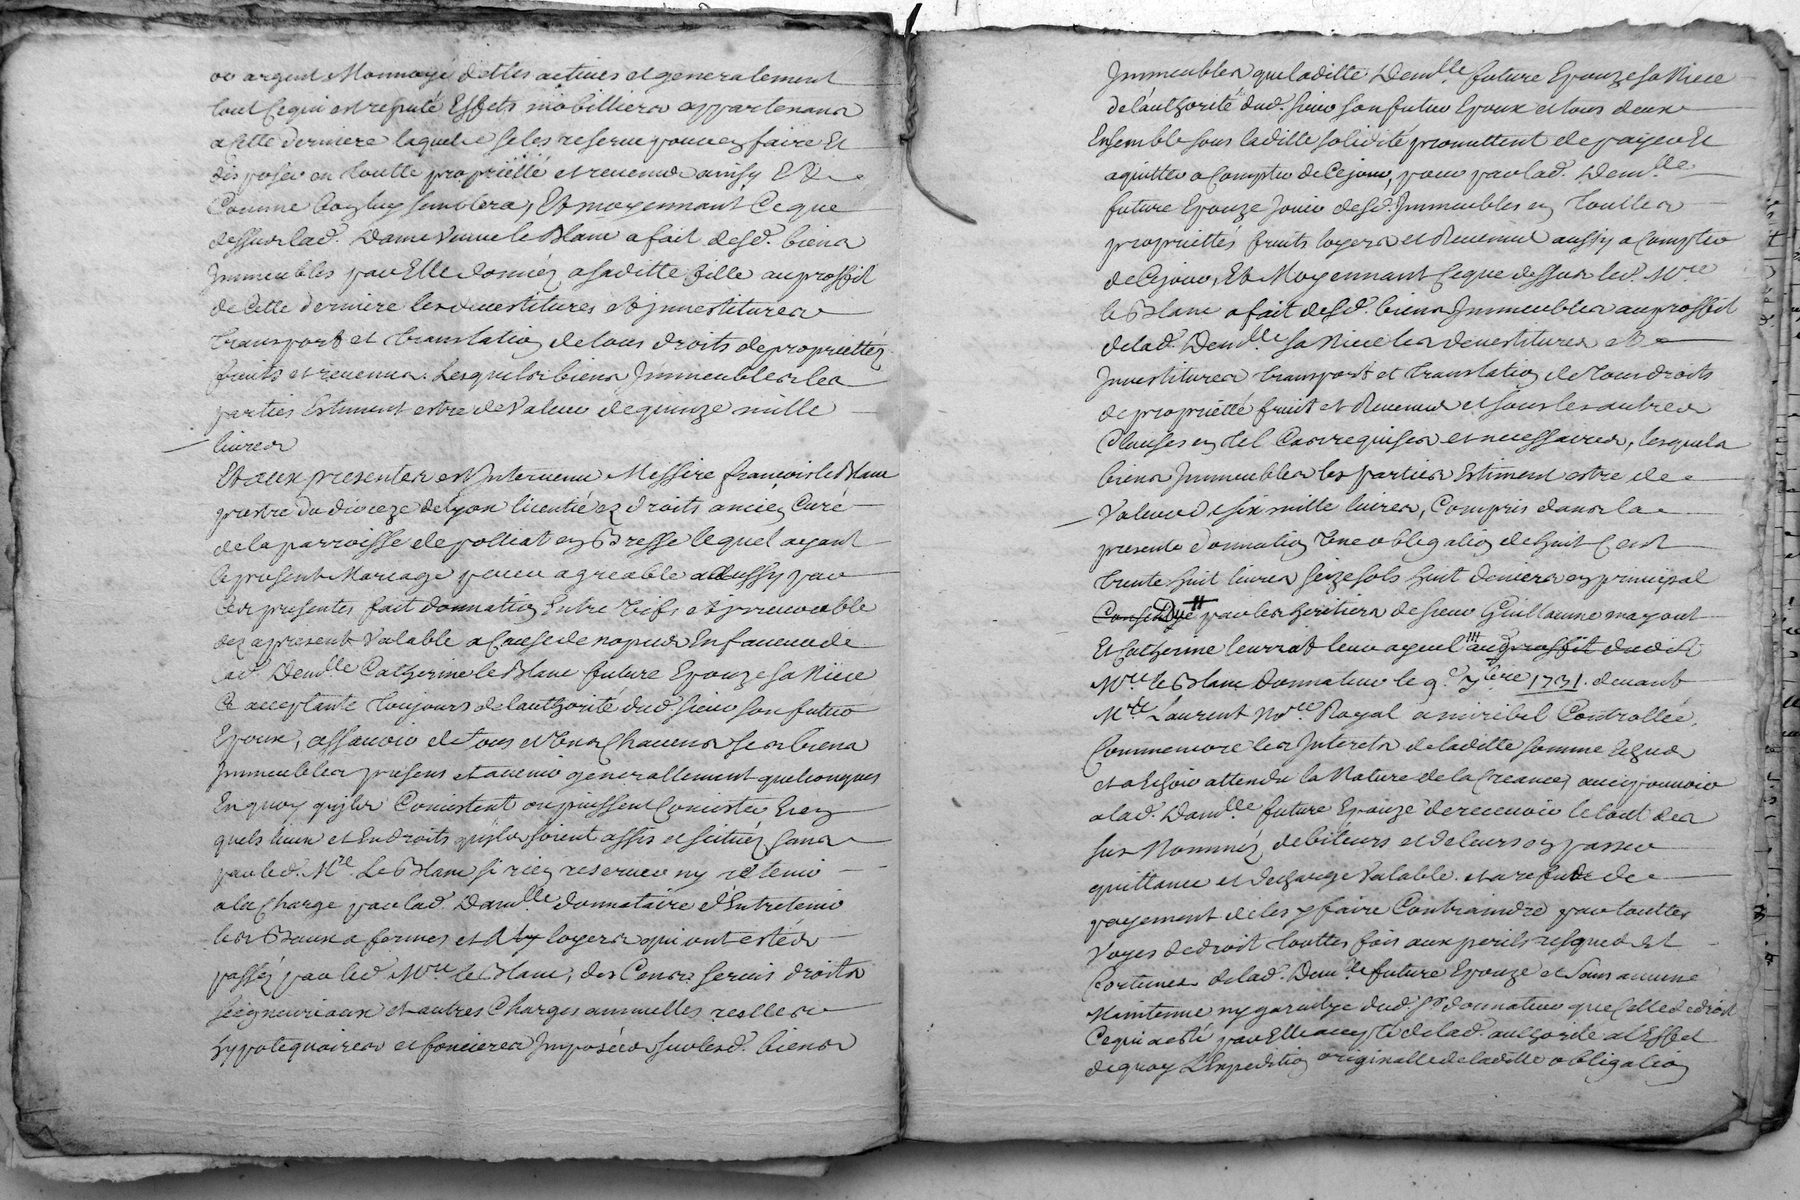 ou argent Monnoyé dettes actives et generalement
tout cequi est reputé Effets mobilliers appartenans
a cette derniere laquelle se les reserve pour en faire Et
disposer en toutte proprietté et revenus ainsy Et
Comme bon luy semblera, Et moyennant Ce que
dessus lad. Dame veuve le Blanc a fait desd. biens
Immeubles par Elle donnéz a saditte fille au proffit
de Cette derniere les devestitures et investitures
transport et translation de tous droits de propriettéz
fruits et revenus. Lesquels biens Immeubles les
parties Estiment estre de Valeur de quinze mille
livres
Et aux presentes est Intervenu Messire françois le Blanc
prestre du dioceze de Lyon licentié ez droits ancien Curé
de la parroisse de polliat en Bresse lequel ayant
le present Mariage pour agreable a aussy par
Ces presentes fait donnation Entre vifs et irrevocable
dez apresent Valable a Cause de nopces En faveur de
lad. Demlle Catherine le Blanc future Epouze sa Niece
Ce acceptante toujours de l'authorité dud sieur son futur
Epoux, assavoir de tous et Uns Chacuns ses biens
Immeubles presens et avenir generallement quelconques
En quoy qu'ils Consistent ou puissent Consister Et en
quels lieux et Endroits qu'ils soient assis et scituéz sans
par led. Mre. Le Blanc s'i rien reserver ny retenir
a la Charge par lad. Damlle donnataire d'Entretenir
les Baux a fermes et loyers qui ont estés
passéz par led. Mre le Blanc, des Cens servis droits
seigneuriaux et autres Charges annuelles reelles
hypotequaires et foncieres Imposées sur lesd. biens
Immeubles que laditte Demlle future Epouze sa Niece
de l'authorité dud. sieur son futur Epoux et tous deux
Ensemble sous laditte solidité promettent de payer Et
aquitter a Compter de Cejour, pour par lad. Demlle
future Epouze Jouir desd. Immeubles en touttes
propriettés fruits loyers et Revenus aussy a Compter
de Cejour, Et Moyennant Ce que dessus led. Mre
le Blanc a fait desd. biens Immeubles au proffit
de lad. Demlle sa Niece les devestitures et
Investitures transport et translation de tous droits
de proprietté fruit et Revenus et sous les autres
Clauses en tel Cas requises et necessaires, lesquels
biens Immeubles les parties Estiment estre de
Valeur de six mille livres, Compris dans la
presente donnation Une obligation de huit Cent
trente huit livres seize sols huit deniers en principal
Düe par les heritiers de sieur Guillaume mayout
Et Catherine leurrat leur ayeul au proffit dudit
Mre le Blanc donnateur le 9e 7bre 1731. devant
Mre Laurent Nore Royal a miribel Controllée,
Comme encore les Interets de laditte somme Echus
et a Echoir attendu la Nature de la Creance, avec pouvoir
a lad. Damlle future Epouze de recevoir le tout des
sus Nomméz debiteurs et de leurs en passer
quittance et decharge Valable et a refus de
payement de les y faire Contraindre par touttes
Voyes de droit touttes fois aux perils risques Et
fortunes de lad. Demlle future Epouze et sans aucune
Maintenue ny garantye dud sr donnateur que Celle de droit
Ce qui a esté par Elle accepté de lad. authorité a l'Effet
de quoy L'Expedition originalle de laditte obligation